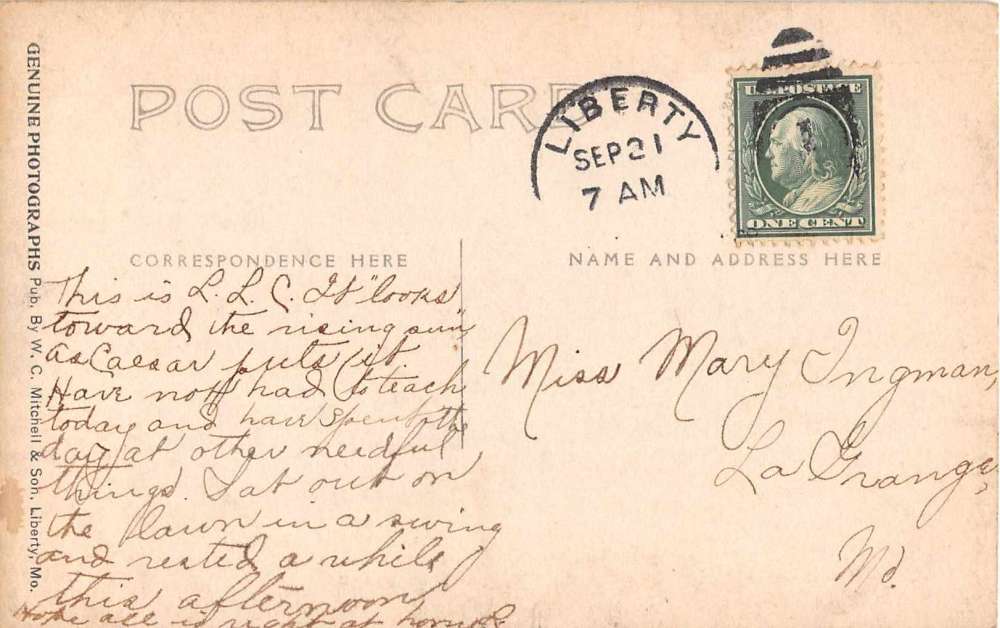 POST CARD
LIBERTY
SEP 21
7 AM
U.S. POSTAGE
ONE CENT
CORRESPONDENCE HERE
NAME AND ADDRESS HERE
GENUINE PHOTOGRAPHS Pub. By W. C. Mitchell & Son, Liberty, Mo.
This is L. L. C. It "looks
toward the rising sun"
as Caesar puts it
Have not had to teach
today and have spent the
day at other needful
things. Sat out on
the lawn in a swing
and rested a while
this afternoon
Hope all is right at home
Miss Mary Ingman,
La Grange,
Mo.